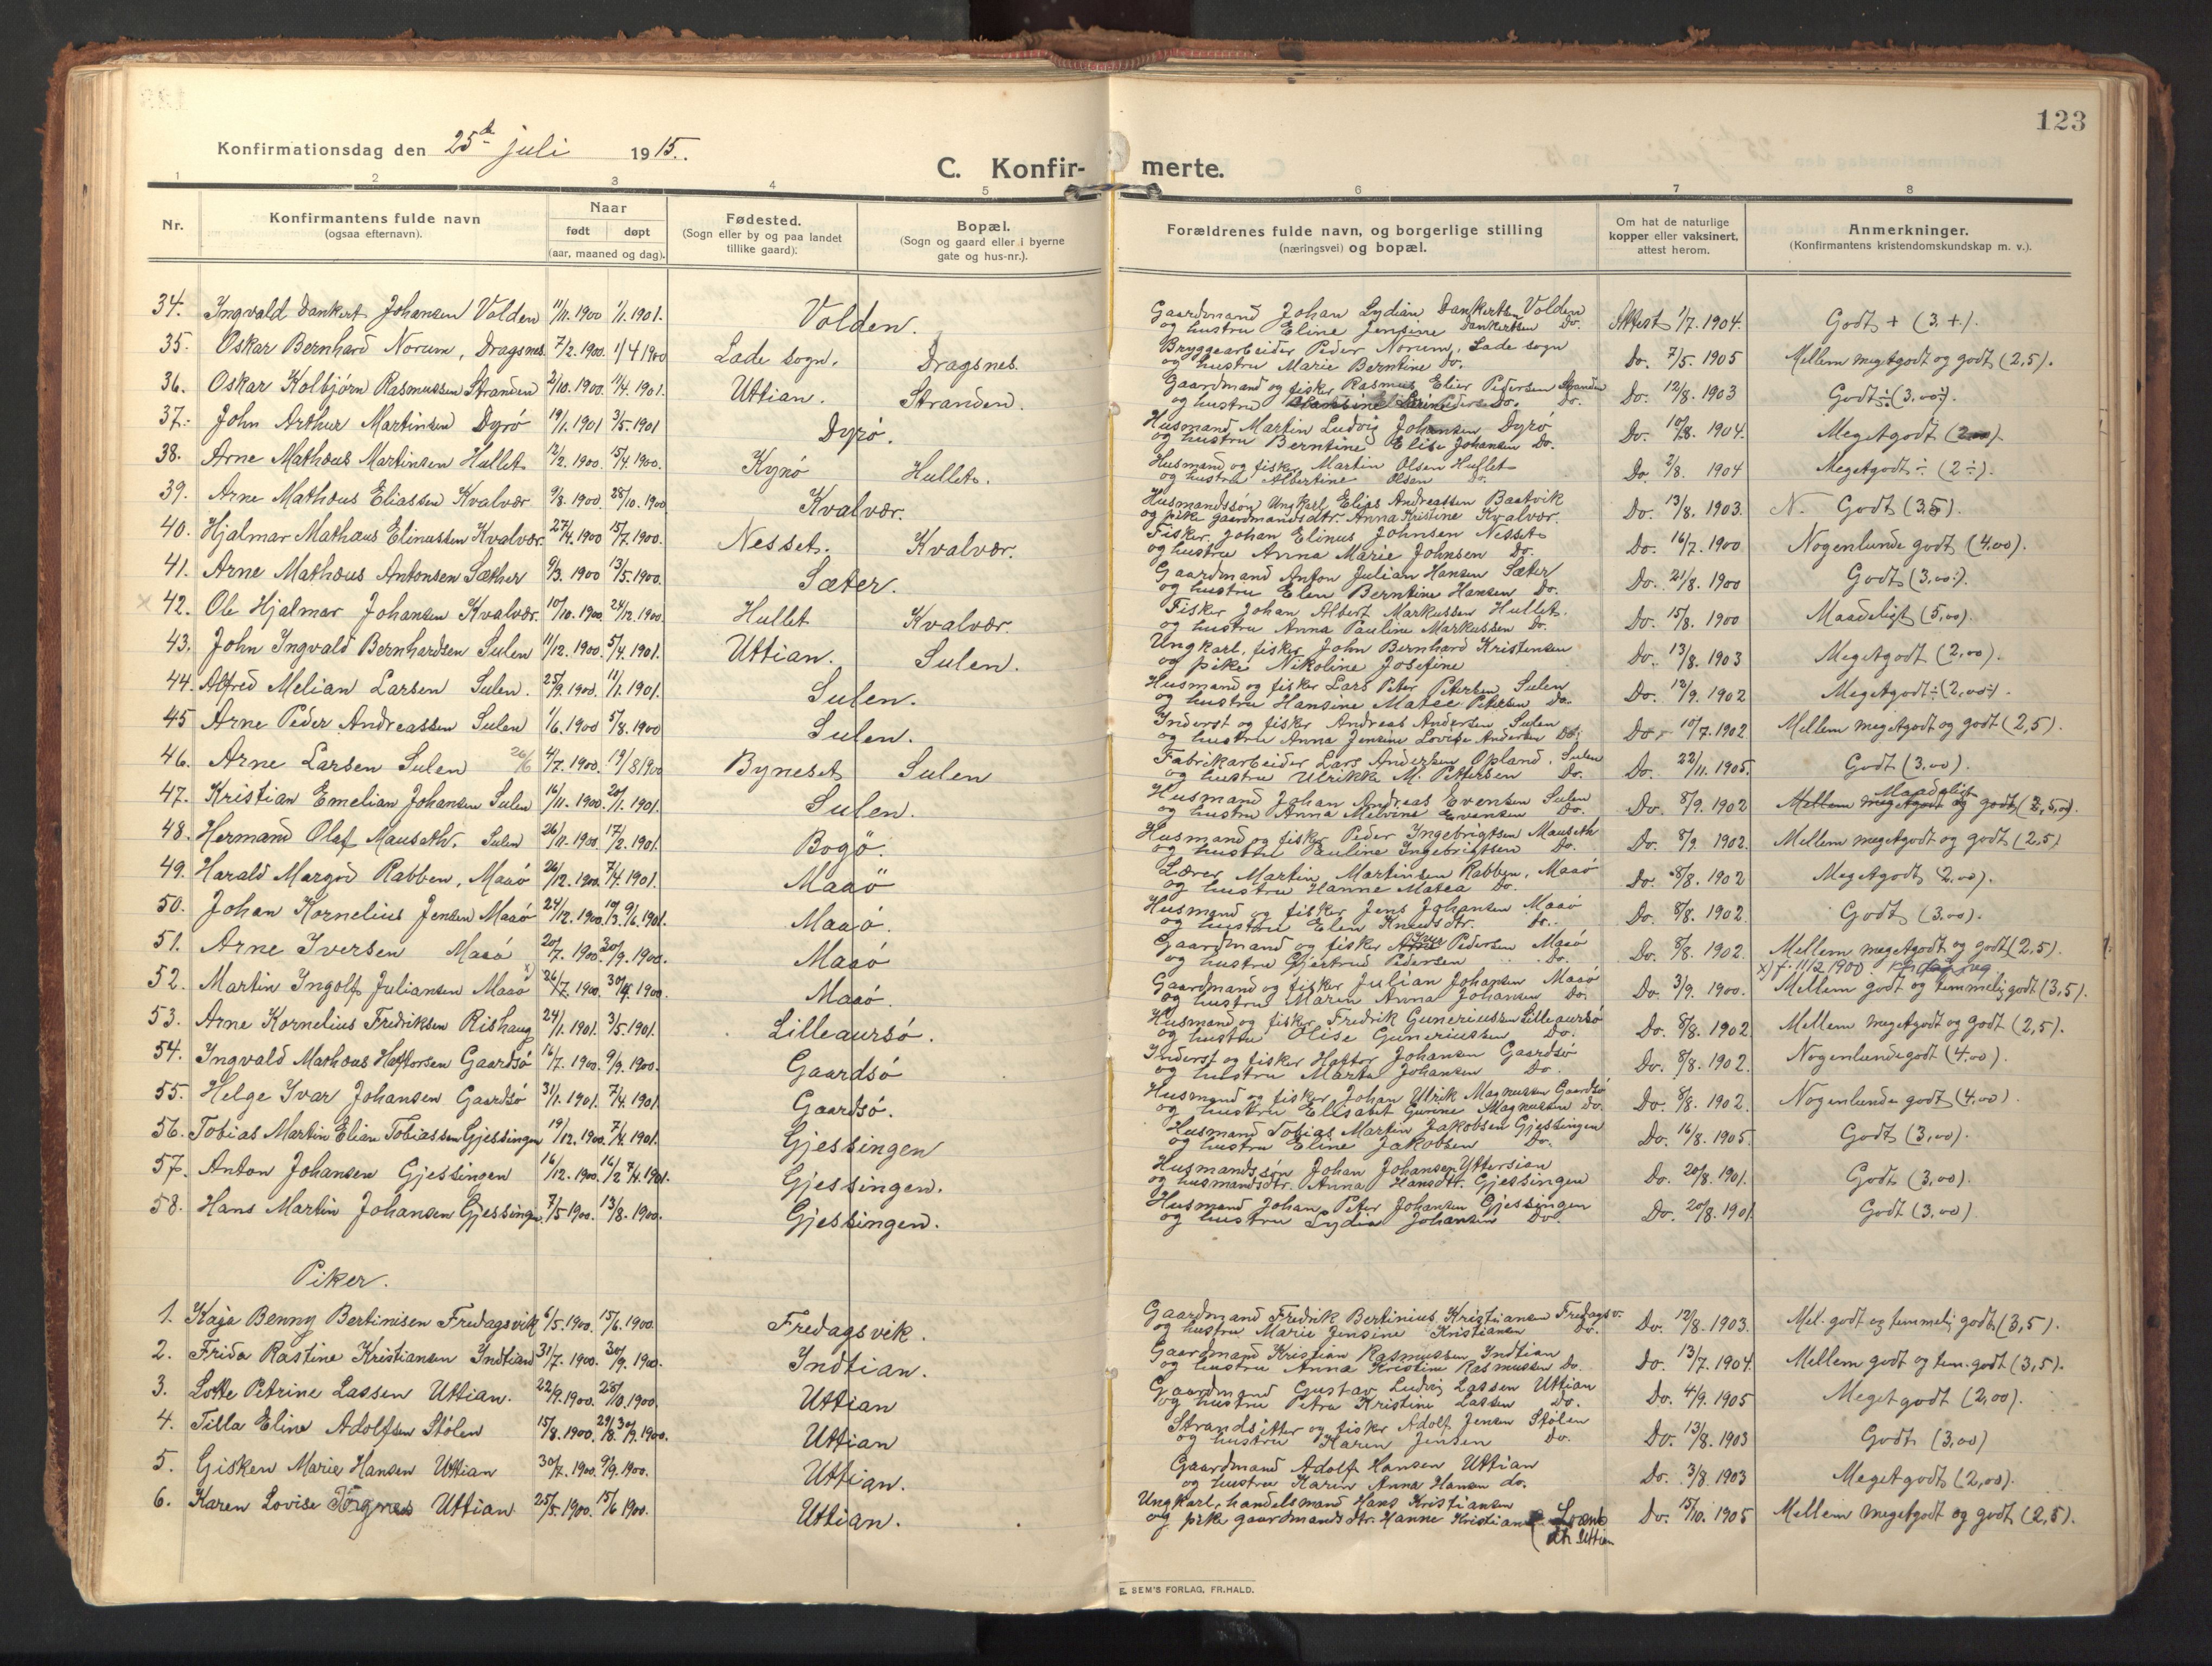 123
Konfirmationsdag den 25de juli 1915.
C. Konfirmerte.
1 2 3 4 5 6 7 8
Nr.
Konfirmantens fulde navn
(ogsaa efternavn).
Naar
født døpt
(aar, maaned og dag).
Fødested.
(Sogn eller by og paa landet
tillike gaard).
Bopæl.
(Sogn og gaard eller i byerne
gate og hus-nr.).
Forældrenes fulde navn, og borgerlige stilling
(næringsvei) og bopæl.
Om hat de naturlige
kopper eller vaksinert,
attest herom.
Anmerkninger.
(Konfirmantens kristendomskundskap m. v.).
34. Ingvald Dankert Johansen Volden 11/11.1900 1/1.1901. Volden. Gaardmand Johan Lydian Dankertsen Volden Attest 1/7.1904. Godt + (3.+).
og hustru Eline Jensine Dankertsen Do.
35. Oskar Bernhard Norum, Dragsnes. 7/2.1900. 1/4 1900 Lade sogn. Dragsnes. Bryggearbeider Peder Norum, Lade sogn Do. 7/5.1905 Mellem megetgodt og godt (2,5).
og hustru Marie Berntine Do.
36. Oskar Kolbjørn Rasmussen Stranden 2/10.1900. 1/4.1901. Uttian. Stranden. Gaardmand og fisker Rasmus Elier Pedersen Stranden Do. 12/8.1903 Godt ÷ (3.00÷).
og hustru Do.
37. John Arthur Martinsen Dyrö 19/1.1901 3/5.1901 Dyrö. Husmand Martin Ludvig Johansen Dyrö Do. 10/8.1904. Megetgodt (2.00).
og hustru Berntine Elise Johansen Do.
38. Arne Mathæus Martinsen Hullet 12/2.1900. 15/4.1900. Kynö Hullet. Husmand og fisker Martin Olsen Hullet Do. 2/8. 1904 Megetgodt ÷ (2÷).
og hustru Albertine Olsen Do.
39. Arne Mathæus Eliassen Kvalvær 9/8.1900. 28/10.1900 Kvalvær. Husmandssøn Ungkarl Elias Andreassen Baatvik Do. 13/8.1903. N. Godt (3,5).
og pike gaardmandsdtr. Anna Kristine Kvalvær.
40. Hjalmar Mathæus Elinussen Kvalvær. 27/4.1900 15/7.1900. Nesset. Kvalvær. Fisker Johan Elinus Johnsen Nesset Do. 16/7.1900 Nogenlunde godt (4.00).
og hustru Anna Marie Johnsen Do.
41. Arne Mathæus Antonsen Sæther 9/3.1900 13/5.1900. Sæter. Gaardmand Anton Julian Hansen Sæter Do. 21/8.1900 Godt (3,00÷).
og hustru Elen Berntine Hansen Do.
× 42. Ole Hjalmar Johansen Kvalvær. 10/10.1900. 24/12.1900 Hullet Kvalvær. Fisker Johan Albert Markussen Hullet. Do. 15/8.1900 Maadeligt (5,00).
og hustru Anna Pauline Markussen Do.
43. John Ingvald Bernhardsen Sulen 11/12.1900. 5/4.1901. Uttian. Sulen. Ungkarl, fisker John Bernhard Kristensen Do. 13/8.1903 Megetgodt (2,00).
og pike Nikoline Josefine
44. Alfred Melian Larsen Sulen. 25/9.1900. 11/1.1901. Sulen. Husmand og fisker Lars Peter Petersen Sulen Do. 12/9.1902 Megetgodt ÷ (2,00÷).
og hustru Hansine Matee Petersen Do.
45 Arne Peder Andreassen Sulen 1/6.1900 5/8.1900 Sulen. Inderst og fisker Andreas Andersen Sulen Do. 10/7.1902 Mellem megetgodt og godt (2,5).
og hustru Anna Jensine Lovise Andersen Do.
46. Arne Larsen Sulen 26/6 4/7.1900. 19/8 1900 Byneset Sulen Fabrikarbeider Lars Andersen Opland, Sulen Do. 22/11.1905. Godt (3,00).
og hustru Ulrikke M. Pettersen Do.
47. Kristian Emelian Johansen Sulen 16/11.1900. 20/1.1901. Sulen. Husmand Johan Andreas Evensen Sulen Do. 8/9.1902 Mellem megetgodt og Maadeligt godt (2,5,00).
og hustru Anna Melvine Evensen Do.
48. Hermand Olaf Mauseth. Sulen 26/11.1900. 17/2.1901. Bogö. Husmand og fisker Peder Ingebrigtsen Mauseth Do. 8/9 1902. Mellem megetgodt og godt (2,5)
og hustru Pauline Ingebrigtsen Do.
49. Harald Margod Rabben, Maaö 26/12.1900. 7/4.1901. Maaö Lærer Martin Martinsen Rabben, Maaö Do. 8/8.1902 Megetgodt (2,00).
og hustru Hanne Matea Do.
50. Johan Kornelius Jensen Maaö 24/12.1900. 10/3. 9/6.1901. Maaö. Husmand og fisker Jens Johansen Maaö Do. 8/8.1902. Godt (3.00).
og hustru Elen Knudsdtr. do.
51. Arne Iversen Maaö 20/7.1900. 30/9.1900. Maaö Gaardmand og fisker Iver Pedersen Maaö Do. 8/8.1902. Mellem megetgodt og godt (2,5).
og hustru Gjertrud Pedersen Do.
×) f. 11/2 1900
52. Martin Ingolf Juliansen Maaö ×) 26/7.1900. 30/9.1900. Maaö. Gaardmand og fisker Julian Johansen Maaö Do. 3/9.1900. Mellem godt og temmelig godt (3,5).
og hustru Maren Anna Johansen Do.
53. Arne Kornelius Fredriksen Rishaug 24/1.1901. 3/5.1901. Lilleaursö. Husmand og fisker Fredrik Guneriussen Lilleaursö Do. 8/8.1902. Mellem megetgodt og godt (2,5).
og hustru Olise Guneriussen Do.
54. Ingvald Mathæus Haftorsen Gaardsö 16/7.1900. 9/9.1900. Gaardsö Inderst og fisker Haftor Johansen Gaardsö Do. 8/8.1902. Nogenlundegodt (4.00).
og hustru Marta Johansen Do.
55. Helge Ivar Johansen Gaardsö 31/1.1901. 7/4.1901 Gaardsö. Husmand og fisker Johan Ulrik Magnussen Gaardsö Do. 8/8.1902. Nogenlunde godt (4,00).
og hustru Elisabet Gurine Magnussen do.
56. Tobias Martin Elian Tobiassen Gjessingen 19/12.1900. 7/4.1901. Gjessingen Husmand Tobias Martin Jakobsen Gjessingen Do. 16/8.1905. Godt (3,00).
og hustru Eline Jakobsen Do.
57. Anton Johansen Gjessingen 16/12.1900. 16/2 7/4.1901. Gjessingen. Husmandssøn Johan Johansen Yttersian Do. 20/8.1901. Godt (3,00).
og husmandsdtr. Anna Hansdtr. Gjessingen
58. Hans Martin Johansen Gjessingen. 7/5 1900. 13/8.1900. Gjessingen. Husmand Johan Peter Johansen Gjessingen Do. 20/8.1901 Godt (3,00)
og hustru Lydia Johansen Do.
Piker.
1. Kaja Benny Bertinisen Fredagsvik 6/5.1900. 15/6.1900. Fredagsvik. Gaardmand Fredrik Bertinius Kristiansen Fredagsv. Do. 12/8.1903. Mel. godt og temmelig godt (3,5).
og hustru Marie Jensine Kristiansen Do.
2. Frida Rastine Kristiansen Indtian 31/7.1900. 30/9.1900. Indtian. Gaardmand Kristian Rasmussen Indtian Do. 13/7.1904. Mellem godt og tem. godt (3,5).
og hustru Anna Kristine Rasmussen Do.
3. Lotte Petrine Lassen Uttian. 22/9.1900. 28/10.1900. Uttian Gaardmand Gustav Ludvig Lassen Uttian Do. 4/9.1905 Megetgodt (2,00).
og hustru Petra Kristine Lassen Do.
4. Tilla Eline Adolfsen Stölen 15/8.1900. 29/8. 30/9.1900. Uttian Strandsitter og fisker Adolf Jensen Stölen Do. 13/8.1903 Godt (3,00)
og hustru Karen Jensen Do.
5. Gisken Marie Hansen Uttian 30/7.1900. 9/9.1900. Uttian. Gaardmand Adolf Hansen Uttian Do. 3/8.1903 Megetgodt (2,00).
og hustru Karen Anna Hansen do.
6. Karen Lovise Törgnes Uttian 25/5.1900. 15/6 1900. Uttian. Ungkarl, handelsmand Hans Kristiansen Do. 15/10.1905 Mellem megetgodt og godt (2,5).
og pike gaardmandsdtr. Hanne Kristians
dtr Uttian
E. SEM'S FORLAG, FR.HALD.